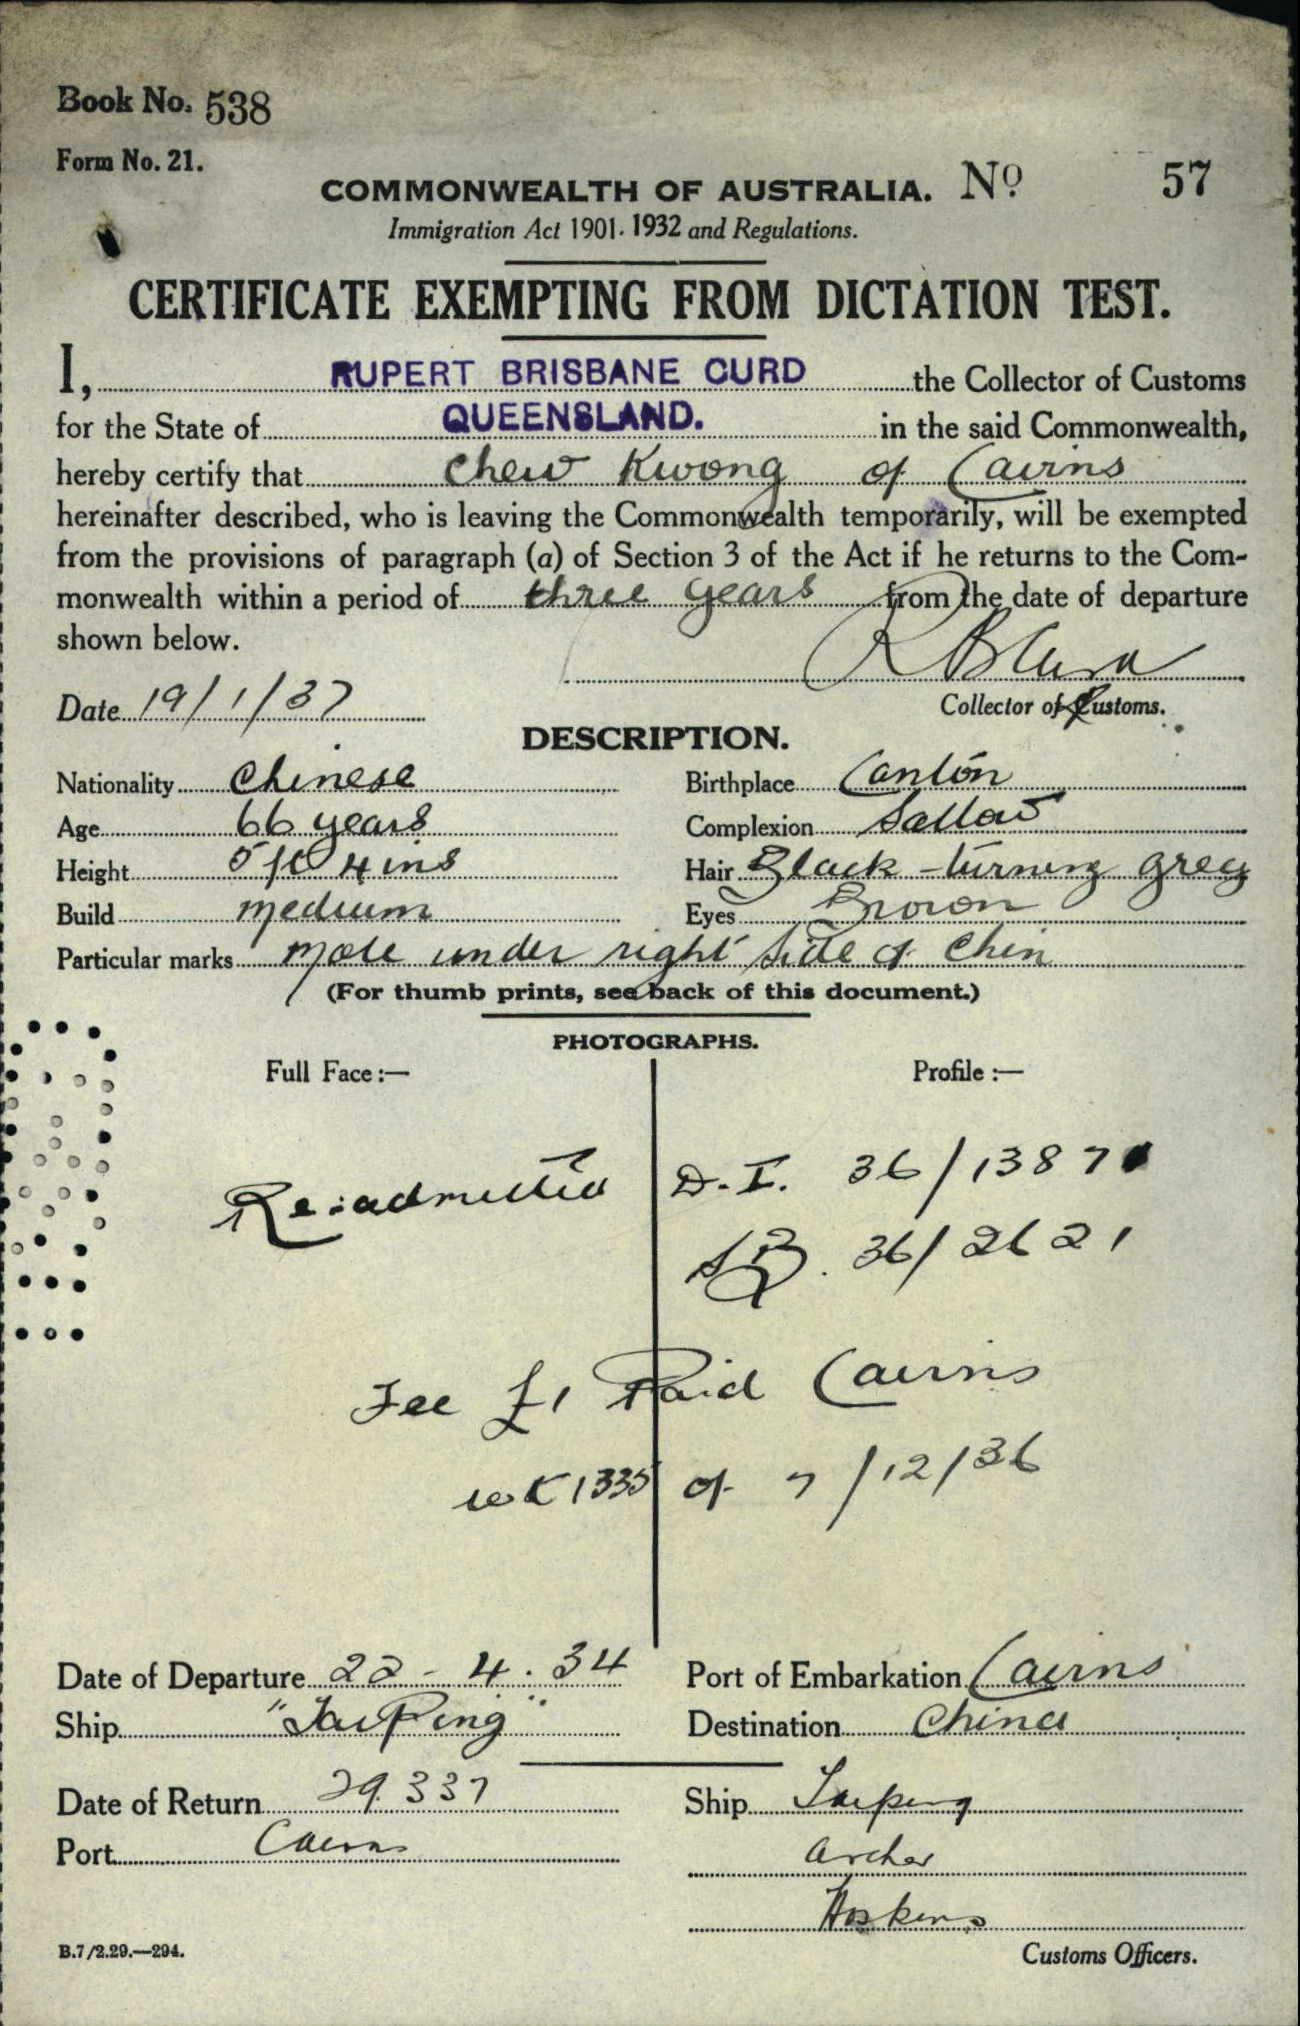 Book No. 538
Form No. 21.
COMMONWEALTH OF AUSTRALIA. No 57
Immigration Act 1901-1932 and Regulations.
CERTIFICATE EXEMPTING FROM DICTATION TEST.
I, RUPERT BRISBANE CURD the Collector of Customs
for the State of QUEENSLAND. in the said Commonwealth,
hereby certify that Chew Kwong of Cairns
hereinafter described, who is leaving the Commonwealth temporarily, will be exempted
from the provisions of paragraph (a) of Section 3 of the Act if he returns to the Com-
monwealth within a period of three years from the date of departure
shown below.
R B Curd
Date 19/1/37 Collector of Customs.
DESCRIPTION.
Nationality Chinese Birthplace Canton
Age 66 years Complexion Sallow
Height 5 ft 4 ins Hair Black - turning grey
Build medium Eyes Brown
Particular marks Mole under right side of chin
(For thumb prints, see back of this document.)
PHOTOGRAPHS.
Full Face:— Profile:—
Re-admitted D.I. 36/1387
36/2621
Fee £1 Paid Cairns
1335 of 7/12/36
Date of Departure 22-4.34 Port of Embarkation Cairns
Ship "TaiPing" Destination China
Date of Return 29.3.37 Ship Taiping
Port Cairns Archer
Hoskens
B.7/2.29.—294. Customs Officers.